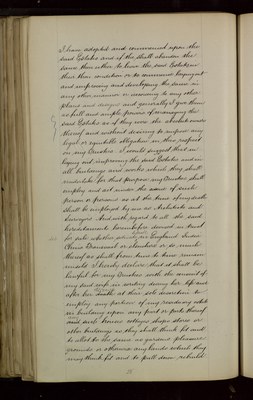 I have adopted and commenced upon the
said Estates and if they shall abandon the
same then either to leave the said Estates in
their then condition or to commence laying out
and improving and developing the same in
any other manner or according to any other
plans and designs and generally I give them
as full and ample powers of managing the
said Estates as if they were the absolute owners
thereof and without desiring to impose any
legal or equitable obligation in this respect
on my Trustees I would suggest that in
laying out improving the said Estates and in
all buildings and works which they shall
undertake for that purpose my Trustees shall
employ and act under the advice of such
person or persons as at the time of my death
shall be employed by me as Architects and
Surveyors And with regard to all the said
hereditaments hereinbefore devised in trust
for sale whether situate in England India
China Transvaal or elsewhere or so much
thereof as shall from time to time remain
unsold I hereby declare that it shall be
lawful for my Trustees with the consent of
my said wife in writing during her life and
after her death at their sole discretion to
employ any portion of my residuary estate
in building upon any part or parts thereof
such houses cottages shops stores or
other buildings as they shall think fit and
to allot to the same as gardens pleasure
grounds or otherwise any lands which they
may think fit and to pull down rebuild